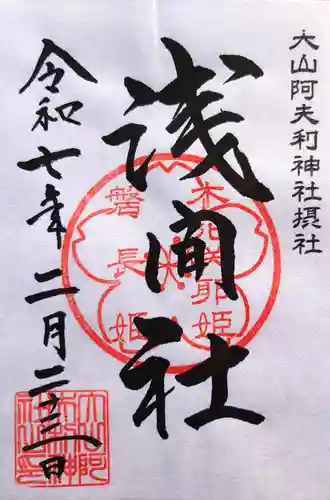 大山阿夫利神社摂社
浅間社
木花咲耶姫
磐長姫
令和七年二月二十二日